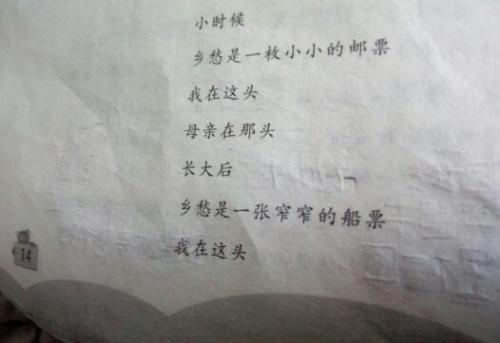 小时候
乡愁是一枚小小的邮票
我在这头
母亲在那头
长大后
乡愁是一张窄窄的船票
我在这头
14